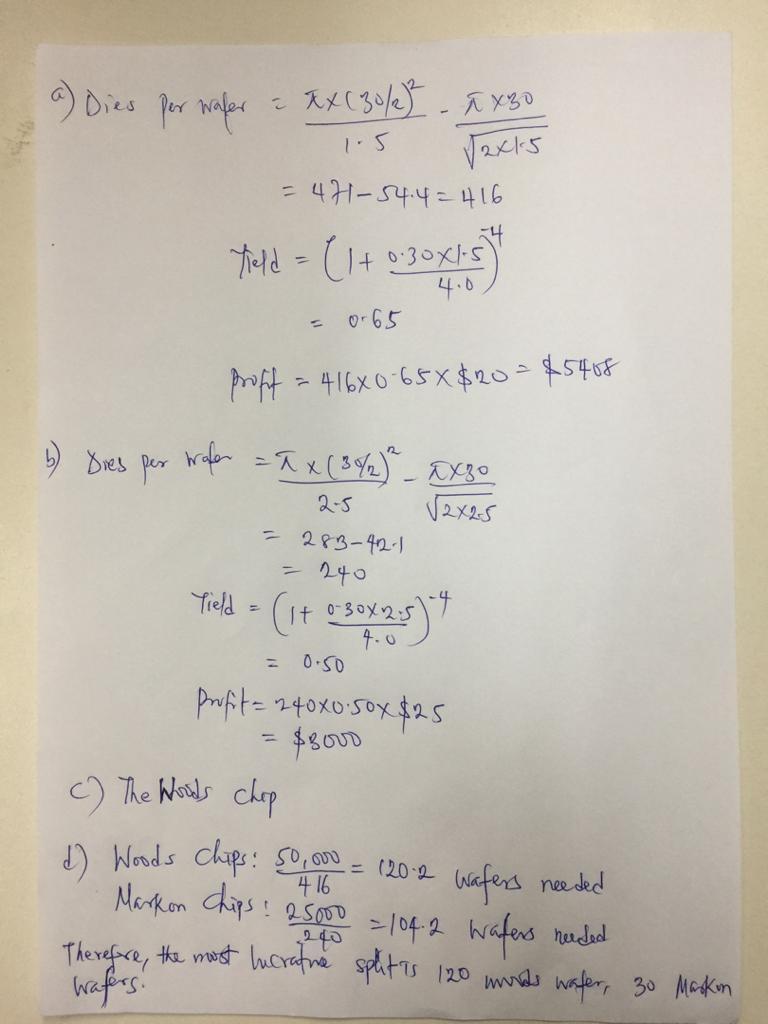 a) Dies per wafer = π×(30/2)² / 1.5 - π×30 / √2×1.5
= 471-54.4=416
Yield = (1+ 0.30×1.5 / 4.0)^-4
= 0.65
Profit = 416×0.65×$20 = $5408
b) Dies per wafer = π×(30/2)² / 2.5 - π×30 / √2×2.5
= 283-42.1
= 240
Yield = (1+ 0.30×2.5 / 4.0)^-4
= 0.50
Profit = 240×0.50×$25
= $3000
c) The Woods chip
d) Woods Chips: 50,000 / 416 = 120.2 wafers needed
Markon Chips: 25000 / 240 = 104.2 wafers needed
Therefore, the most lucrative split is 120 woods wafer, 30 Markon
wafers.